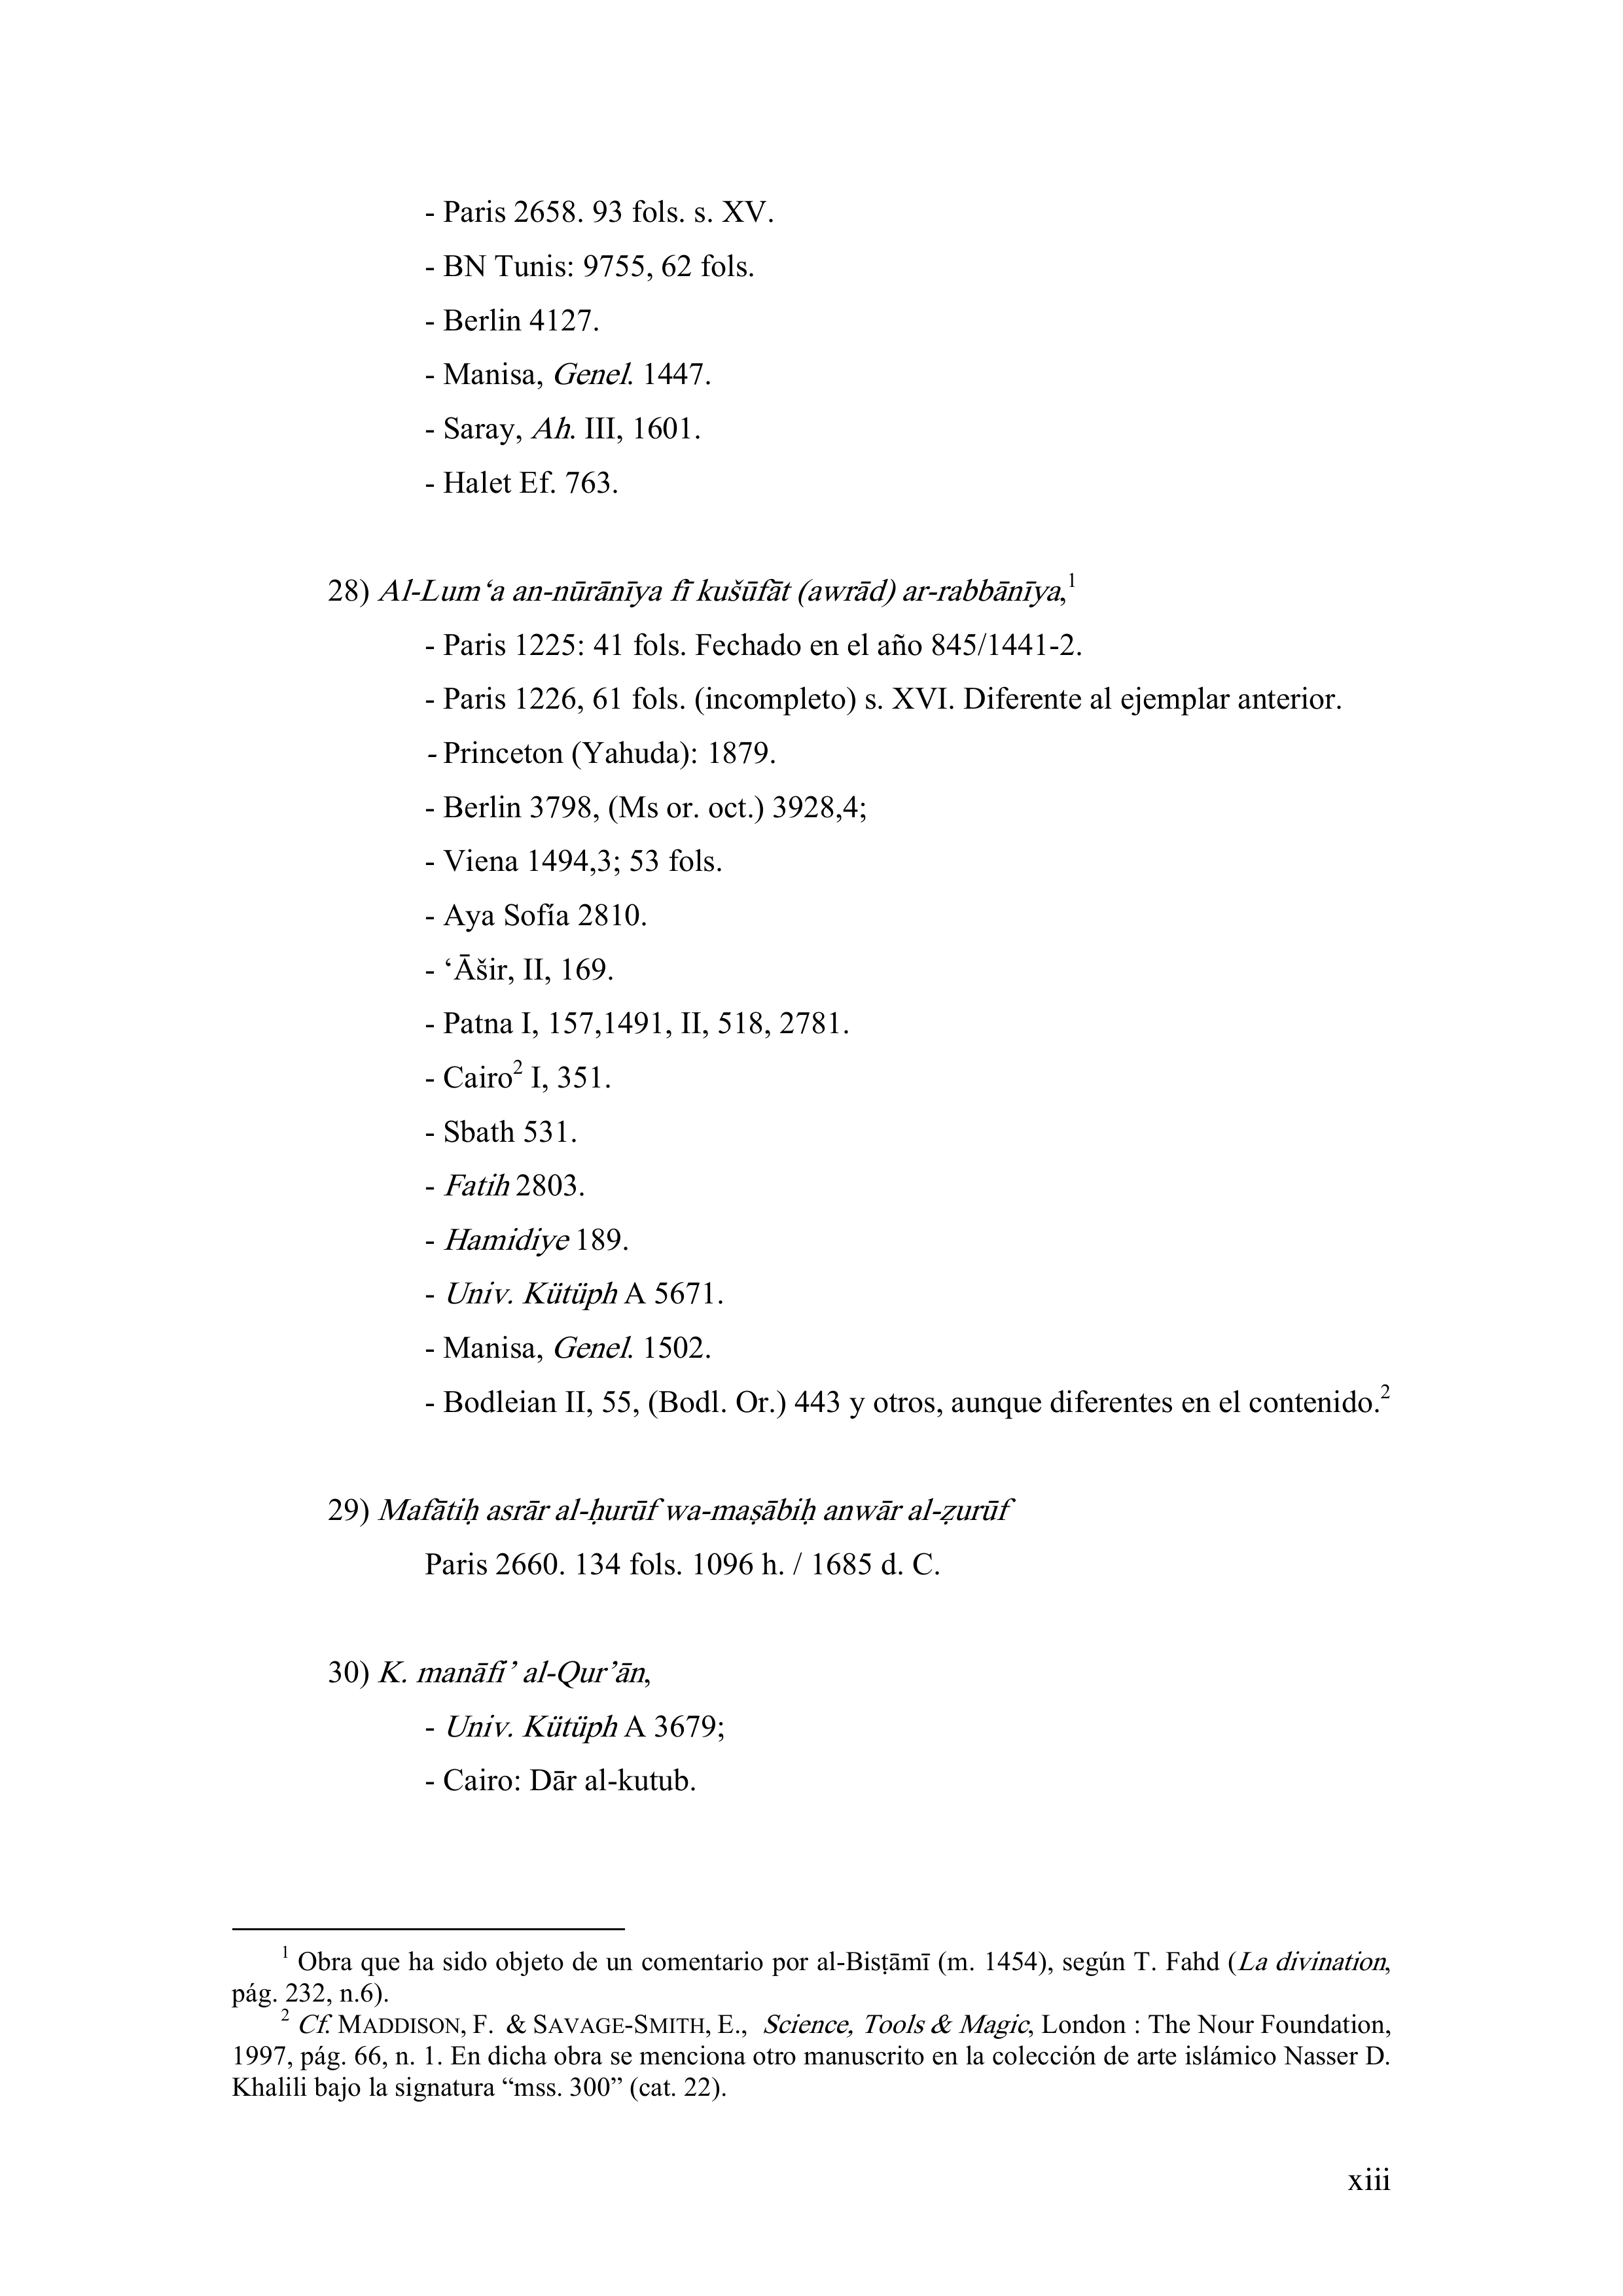 - Paris 2658. 93 fols. s. XV.
- BN Tunis: 9755, 62 fols.
- Berlin 4127.
- Manisa, Genel. 1447.
- Saray, Ah. III, 1601.
- Halet Ef. 763.
28) Al-Lum‘a an-nūrānīya fī kušūfāt (awrād) ar-rabbānīya,1
- Paris 1225: 41 fols. Fechado en el año 845/1441-2.
- Paris 1226, 61 fols. (incompleto) s. XVI. Diferente al ejemplar anterior.
- Princeton (Yahuda): 1879.
- Berlin 3798, (Ms or. oct.) 3928,4;
- Viena 1494,3; 53 fols.
- Aya Sofía 2810.
- ‘Āšir, II, 169.
- Patna I, 157,1491, II, 518, 2781.
- Cairo2 I, 351.
- Sbath 531.
- Fatih 2803.
- Hamidiye 189.
- Univ. Kütüph A 5671.
- Manisa, Genel. 1502.
- Bodleian II, 55, (Bodl. Or.) 443 y otros, aunque diferentes en el contenido.2
29) Mafātiḥ asrār al-ḥurūf wa-maṣābiḥ anwār al-ẓurūf
Paris 2660. 134 fols. 1096 h. / 1685 d. C.
30) K. manāfi’ al-Qur’ān,
- Univ. Kütüph A 3679;
- Cairo: Dār al-kutub.
1 Obra que ha sido objeto de un comentario por al-Bisṭāmī (m. 1454), según T. Fahd (La divination,
pág. 232, n.6).
2 Cf. MADDISON, F. & SAVAGE-SMITH, E., Science, Tools & Magic, London : The Nour Foundation,
1997, pág. 66, n. 1. En dicha obra se menciona otro manuscrito en la colección de arte islámico Nasser D.
Khalili bajo la signatura “mss. 300” (cat. 22).
xiii